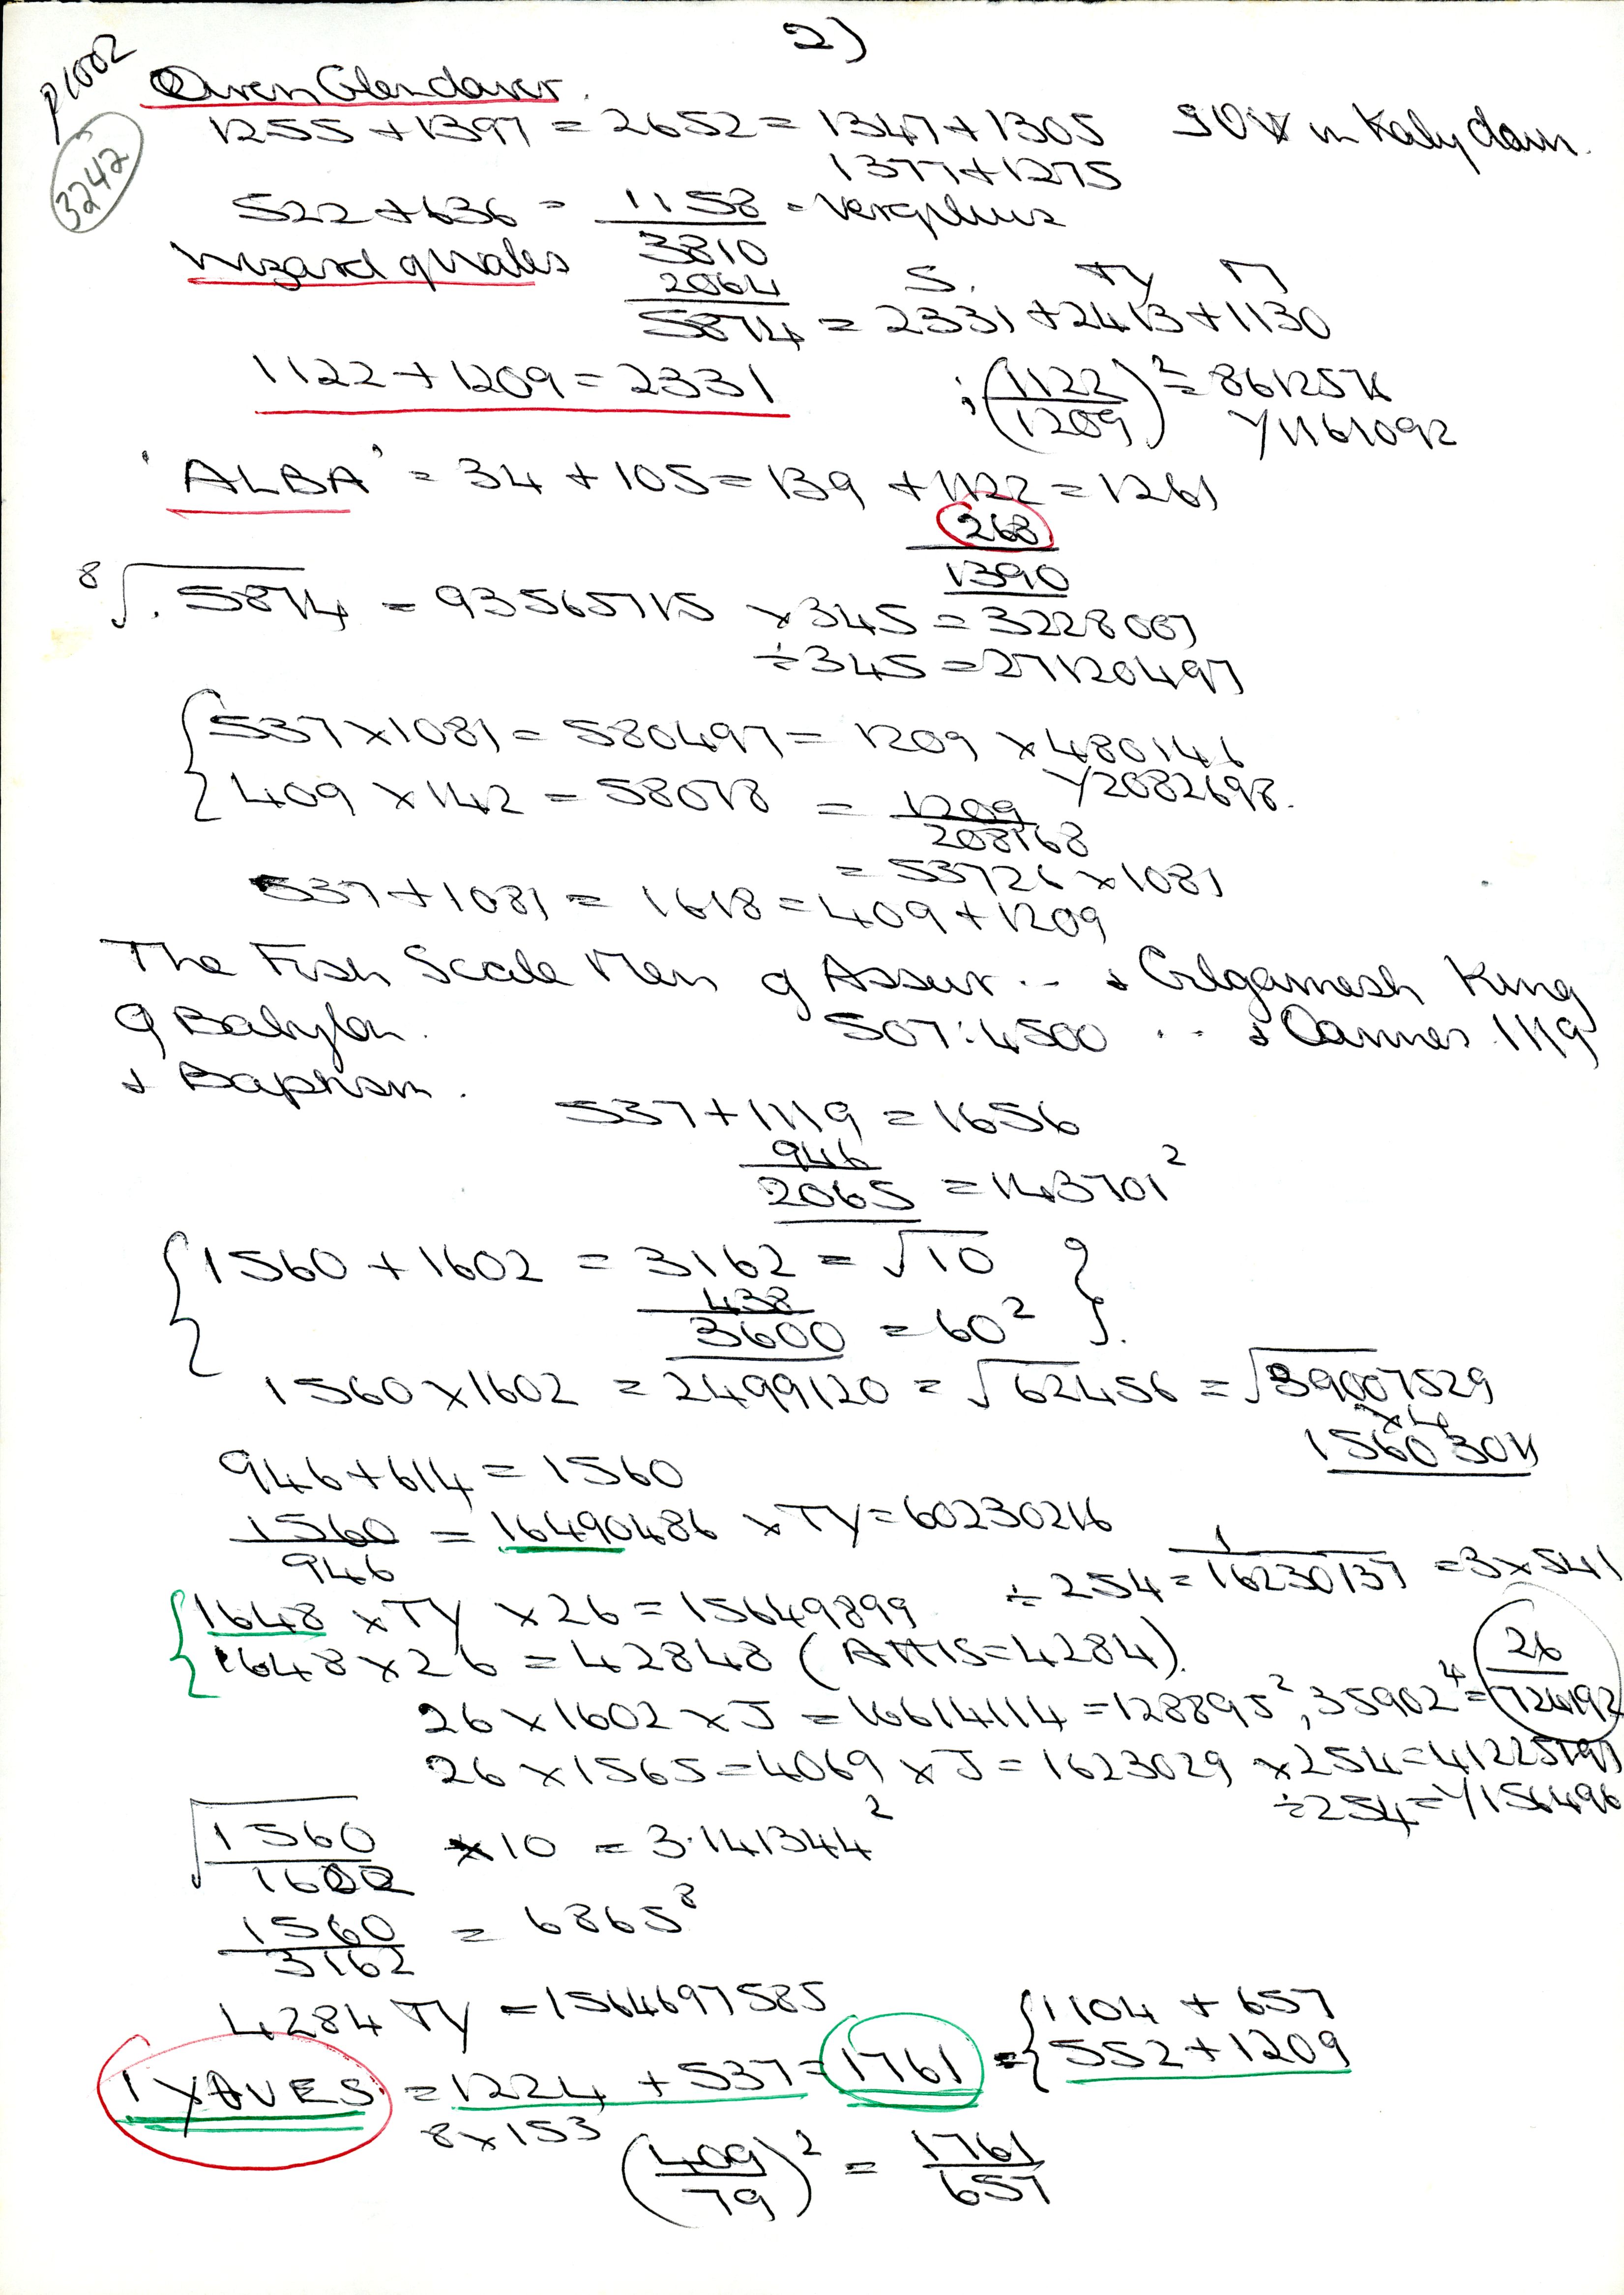 2)
p1002
3242
Owen Glendower.
1255 + 1397 = 2652 = 1347 + 1305
1377 + 1275
522 + 636 = 1158
3810
Wizard of Wales
2064
S. TY
5874 = 2331 + 2413 + 1130
1122 + 1209 = 2331 ; (1122/1209)² = 861257
Y1161092
'ALBA' = 34 + 105 = 139 + 1122 = 1261
268
1390
⁸√.5874 = 93565715 × 345 = 3228007
÷ 345 = 27120497
{ 537 × 1081 = 580497 = 1209 × 480146
Y2082698.
409 × 142 = 58078 = 1209/208168
= 53726 × 1081
537 + 1081 = 1618 = 409 + 1209
The Fish Scale Men of Assur .. & Gilgamesh King
of Babylon. 507:4500 .. & Oannes 1119
& Baphom.
537 + 1119 = 1656
946
2065 = 143701²
{ 1560 + 1602 = 3162 = √10 }
438
3600 = 60²
1560 × 1602 = 2499120 = √62456 = √39007529
× 4
15603011
946 + 614 = 1560
1560/946 = 16490486 × TY = 60230216
÷ 254 = 1/16230137 = 3 × 541
{ 1648 × TY × 26 = 15649899
1648 × 26 = 42848 (ATTIS = 4284).
26 × 1602 × J = 16614114 = 128895², 35902⁴ = 26/724192
26 × 1565 = 4069 × J = 1623029 × 254 = 41225
÷ 254 = Y156496
√1560/1602 × 10 = 3.141344²
1560/3162 = 6865⁸
4284 TY = 1564697585
{ 1104 + 657
= 1224 + 537 = 1761 = { 552 + 1209
8 × 153
(409/79)² = 1761/657